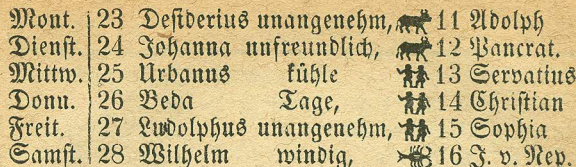 Mont. 23 Desiderius unangenehm, 11 Adolph
Dienst. 24 Johanna unfreundlich, 12 Pancrat.
Mittw. 25 Urbanus kühle 13 Servatius
Donn. 26 Beda Tage, 14 Christian
Freit. 27 Ludolphus unangenehm, 15 Sophia
Samst. 28 Wilhelm windig, 16 J. v. Nep.